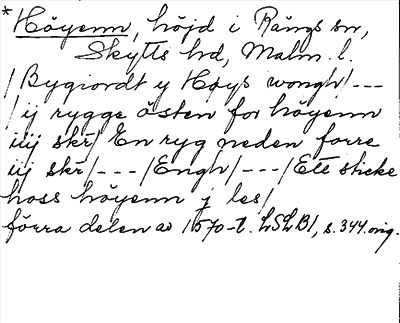 *Höyenn, höjd i Rängs sn,
Skytts hd, Malm. l.
/Bygiordt y Høys wongh/---
/ij rygge østen for höyenn
iiij skr/ En ryg neden forre
iij skr/---/Engh/---/Ett sticke
hoss höyenn j les/
förra delen av 1570-t. LSLB1, s. 344. orig.